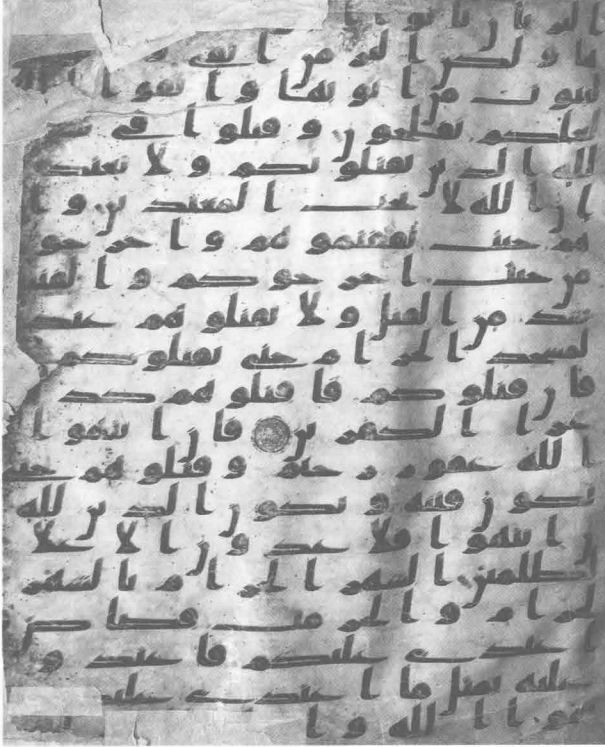 البر بان تاتوا
ها ولكن البر من اتقى و
لبيوت من ابوبها واتقوا ا
لعلكم تفلحون وقتلوا في س
لله الذين يقتلونكم ولا تعتد
ان الله لا يحب المعتدين وا
هم حيث ثقفتموهم واخرجو
من حيث اخرجوكم والفتن
شد من القتل ولا تقتلوهم عند
لمسجد الحرام حتى يقتلوكم
فان قتلوكم فاقتلوهم كذ
جزا الكفرين فان انتهوا
الله غفور رحيم وقتلوهم حتى
تكون فتنة ويكون الدين لله
ن انتهوا فلا عدون الا علا
لظلمين الشهر الحرام بالشهر
لحرام والحرمت قصاص
اعتدى عليكم فاعتدو
عليه بمثل ما اعتدى عليك
تقوا الله وا